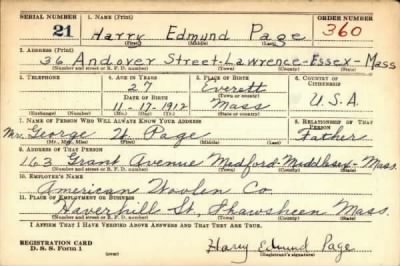 SERIAL NUMBER 1. NAME (Print) ORDER NUMBER
21 Harry Edmund Page 360
(First) (Middle) (Last)
2. ADDRESS (Print)
36 Andover Street-Lawrence-Essex-Mass
(Number and street or R. F. D. number) (Town) (County) (State)
3. TELEPHONE 4. AGE IN YEARS 5. PLACE OF BIRTH 6. COUNTRY OF CITIZENSHIP
27 Everett
DATE OF BIRTH (Town or county)
11-17-1912 Mass U.S.A.
(Exchange) (Number) (Mo.) (Day) (Yr.) (State or country)
7. NAME OF PERSON WHO WILL ALWAYS KNOW YOUR ADDRESS 8. RELATIONSHIP OF THAT PERSON
Mr. George Page Father
(Mr., Mrs., Miss) (First) (Middle) (Last)
9. ADDRESS OF THAT PERSON
163 Grant Avenue Medford-Middlesex-Mass.
(Number and street or R. F. D. number) (Town) (County) (State)
10. EMPLOYER'S NAME
American Woolen Co.
11. PLACE OF EMPLOYMENT OR BUSINESS
Haverhill St, Shawsheen Mass.
(Number and street or R. F. D. number) (Town) (County) (State)
I AFFIRM THAT I HAVE VERIFIED ABOVE ANSWERS AND THAT THEY ARE TRUE.
REGISTRATION CARD
D. S. S. Form 1 Harry Edmund Page
(over) (Registrant's signature)